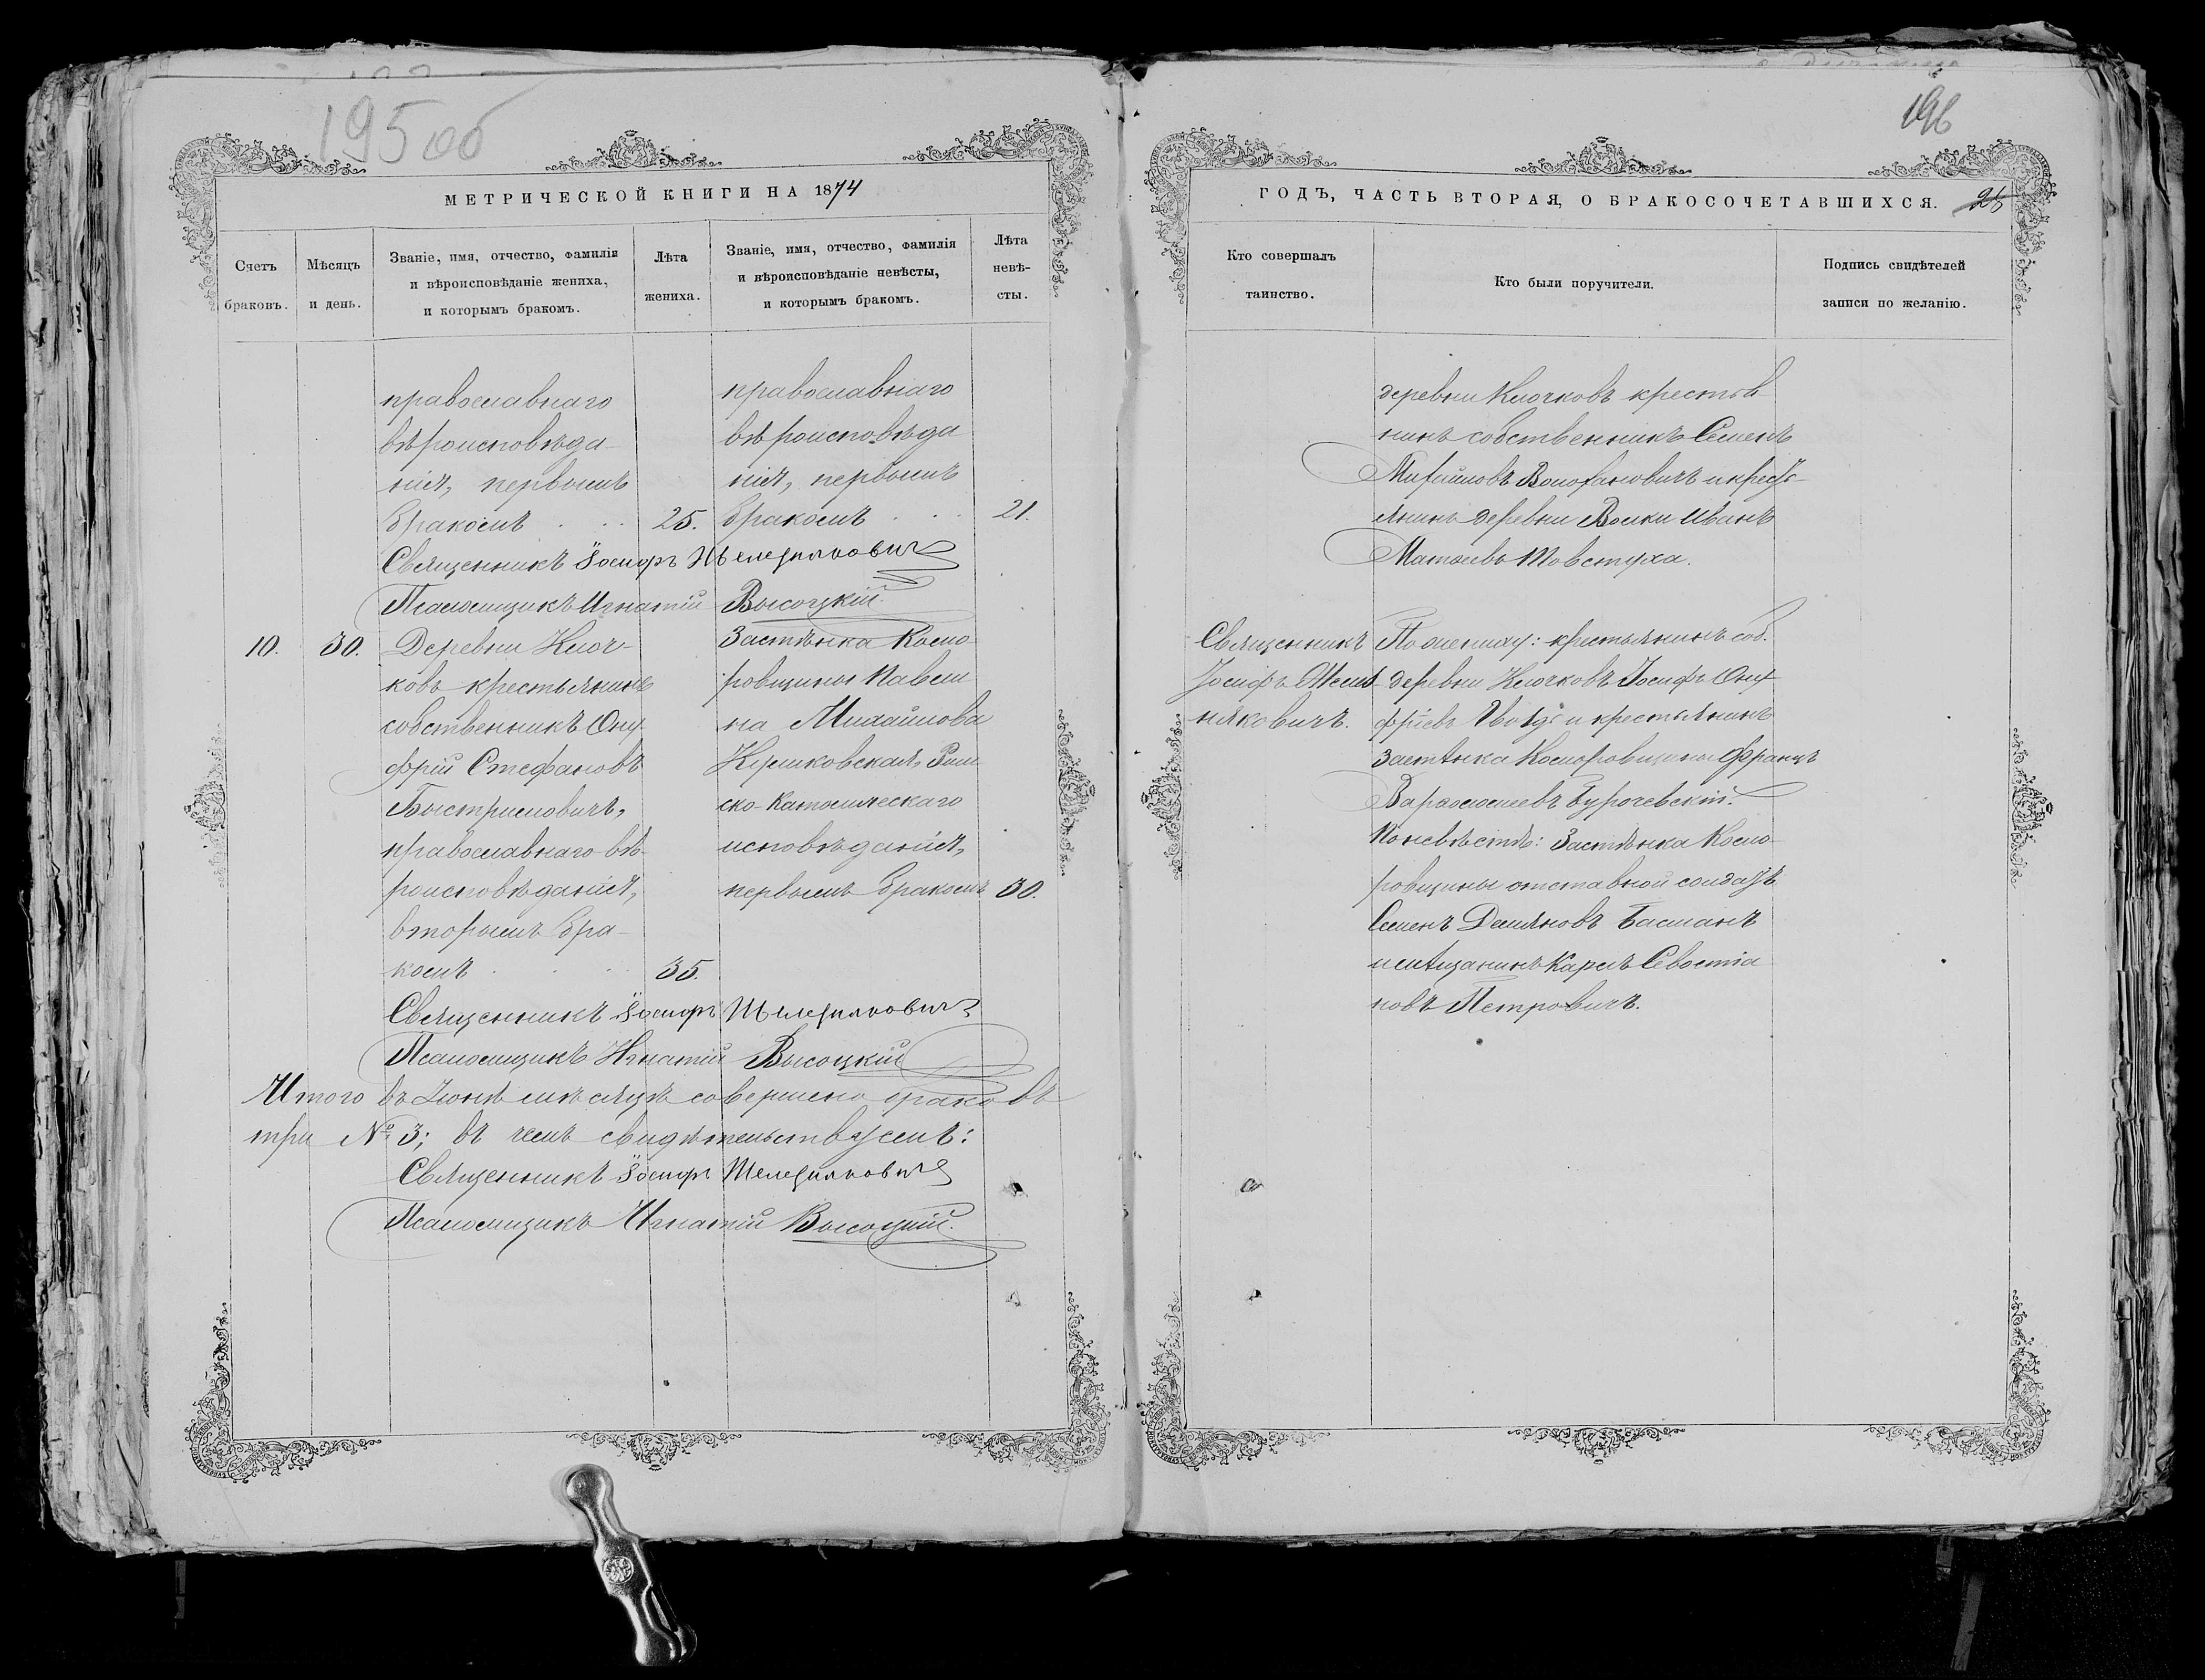 195 об
МЕТРИЧЕСКОЙ КНИГИ НА 1874
Счетъ браковъ.
Мѣсяцъ и день.
Званіе, имя, отчество, фамилія
и вѣроисповѣданіе жениха,
и которымъ бракомъ.
Лѣта жениха.
Званіе, имя, отчество, фамилія
и вѣроисповѣданіе невѣсты,
и которымъ бракомъ.
Лѣта невѣ-
сты.
православнаго
вѣроисповѣда-
нія, первымъ
бракомъ . . . 25.
православнаго
вѣроисповѣда
нія, первымъ
бракомъ . . . 21.
Священникъ Іосифъ
Псаломщикъ Игнатій Высоцкій
10. 30.
Деревни Ключ-
ковъ крестьянинъ
собственникъ Ону
фрій Стефановъ
Быстримовичъ,
православнаго вѣ-
роисповѣданія,
вторымъ бра-
комъ . . . 35.
Застѣнка Комо
ровщины Павели
на Михайлова
Рим
ско-Католическаго
исповѣданія,
первымъ бракомъ 30.
Священникъ Іосифъ
Псаломщикъ Игнатій Высоцкій
Итого въ Іюнѣ мѣсяцѣ совершено браковъ
три № 3; въ чемъ свидѣтельствуемъ:
Священникъ Іосифъ
Псаломщикъ Игнатій Высоцкій.
196
ГОДЪ, ЧАСТЬ ВТОРАЯ, О БРАКОСОЧЕТАВШИХСЯ. 26
Кто совершалъ
таинство.
Кто были поручители.
Подпись свидѣтелей
записи по желанію.
деревни Клочковъ крестья
нинъ собственникъ Семенъ
и кресть-
янинъ деревни Волки Иванъ
Матѳеевъ Товстуха.
Священникъ
Іосифъ
няковичъ.
По жениху: крестьянинъ соб.
деревни Клочковъ Іосифъ Ону
фріевъ и крестьянинъ
застѣнка Коморовщины Францъ
Варѳоломеевъ Бурачевскій.
По невѣстѣ: Застѣнка Комо-
ровщины отставной солдатъ
Семенъ Демяновъ Басманъ
и мѣщанинъ Карлъ Севостіа
новъ Петровичъ.